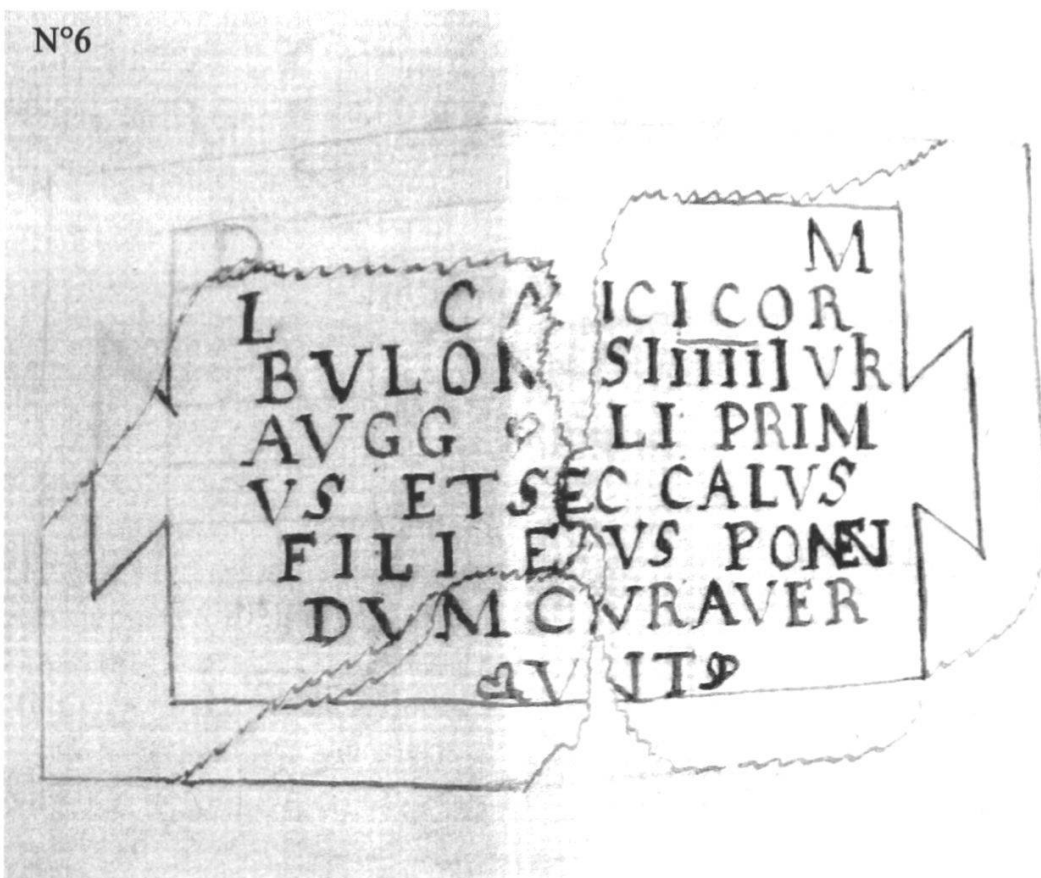 N°6
D M
L CA ICI COR
BVLON SIIIIII VR
AVGG LI PRIM
VS ET SEC CALVS
FILI E VS PONEN
DVM CVRAVER
VNT